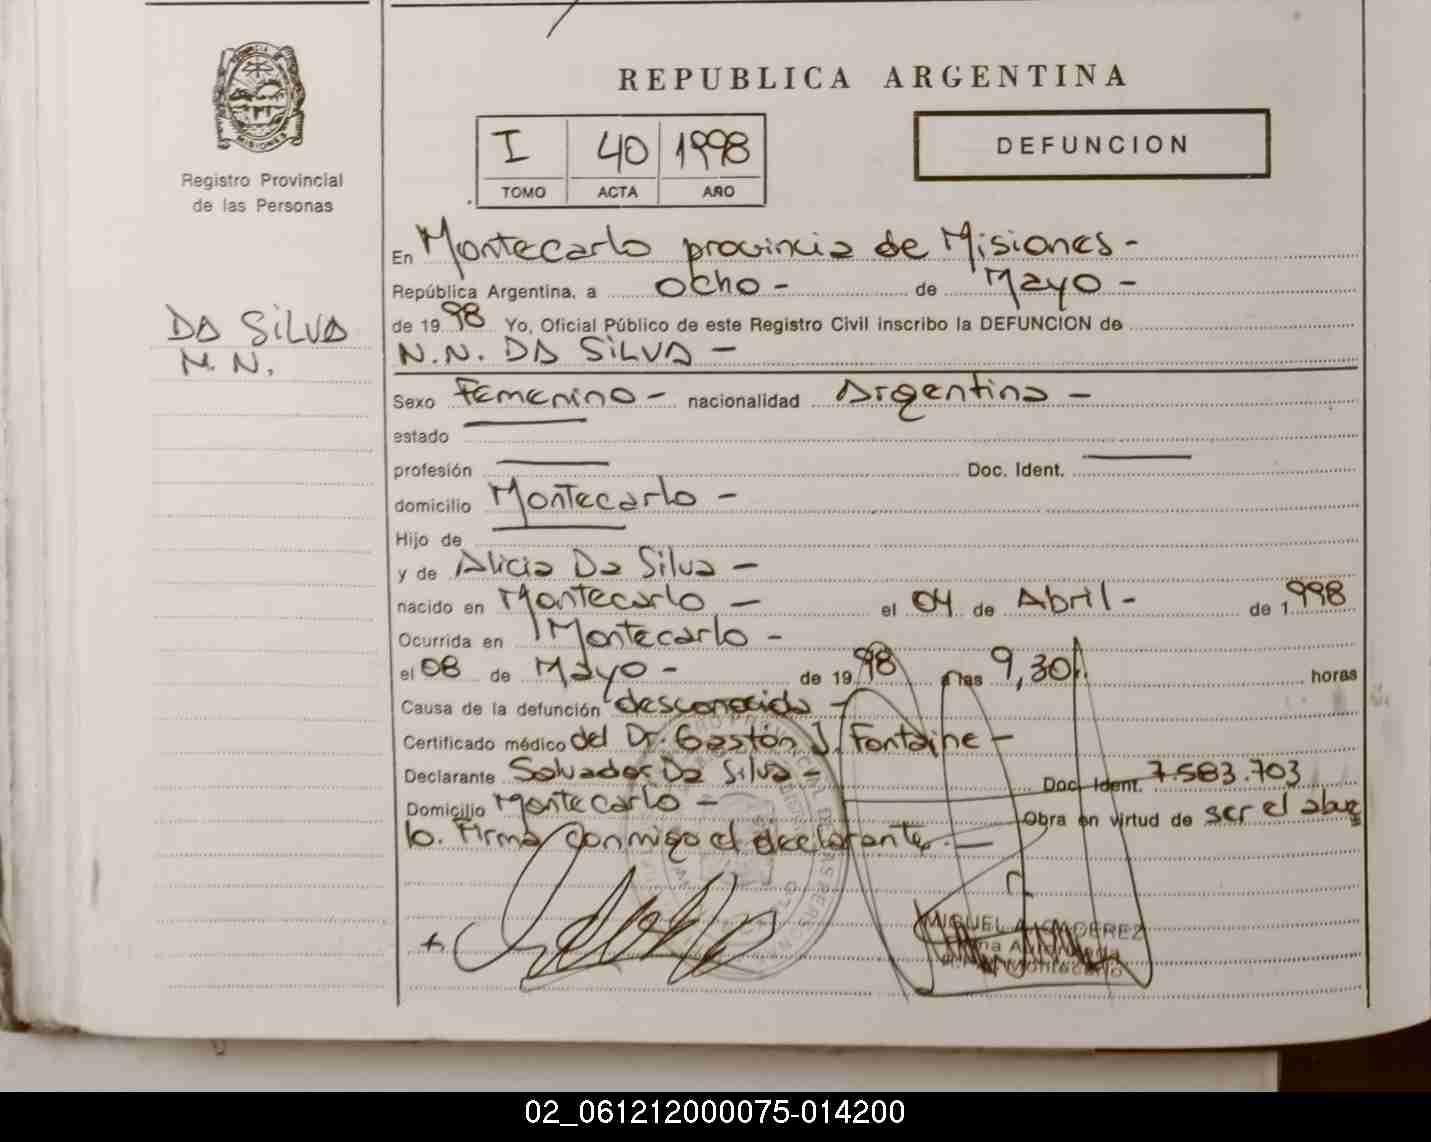 PROVINCIA DE
MISIONES
Registro Provincial
de las Personas
DA SILVA
N. N.
REPUBLICA ARGENTINA
I 40 1998
TOMO ACTA AÑO
DEFUNCION
En Montecarlo provincia de Misiones-
República Argentina, a ocho - de Mayo -
de 1998 Yo, Oficial Público de este Registro Civil inscribo la DEFUNCION de
N.N. DA SILVA -
Sexo Femenino - nacionalidad Argentina -
estado
profesión Doc. Ident.
domicilio Montecarlo -
Hijo de
y de Alicia Da Silva -
nacido en Montecarlo - el 04 de Abril - de 1998
Ocurrida en Montecarlo -
el 08 de Mayo - de 1998 a las 9,30 horas
Causa de la defunción desconocida -
Certificado médico del Dr. Gastón J. Fontaine -
Declarante Salvador Da Silva - Doc. Ident. 7.583.703
Domicilio Montecarlo - Obra en virtud de ser el abue
lo. Firma conmigo el declarante. -
MIGUEL A. CACEREZ
Montecarlo
02_061212000075-014200